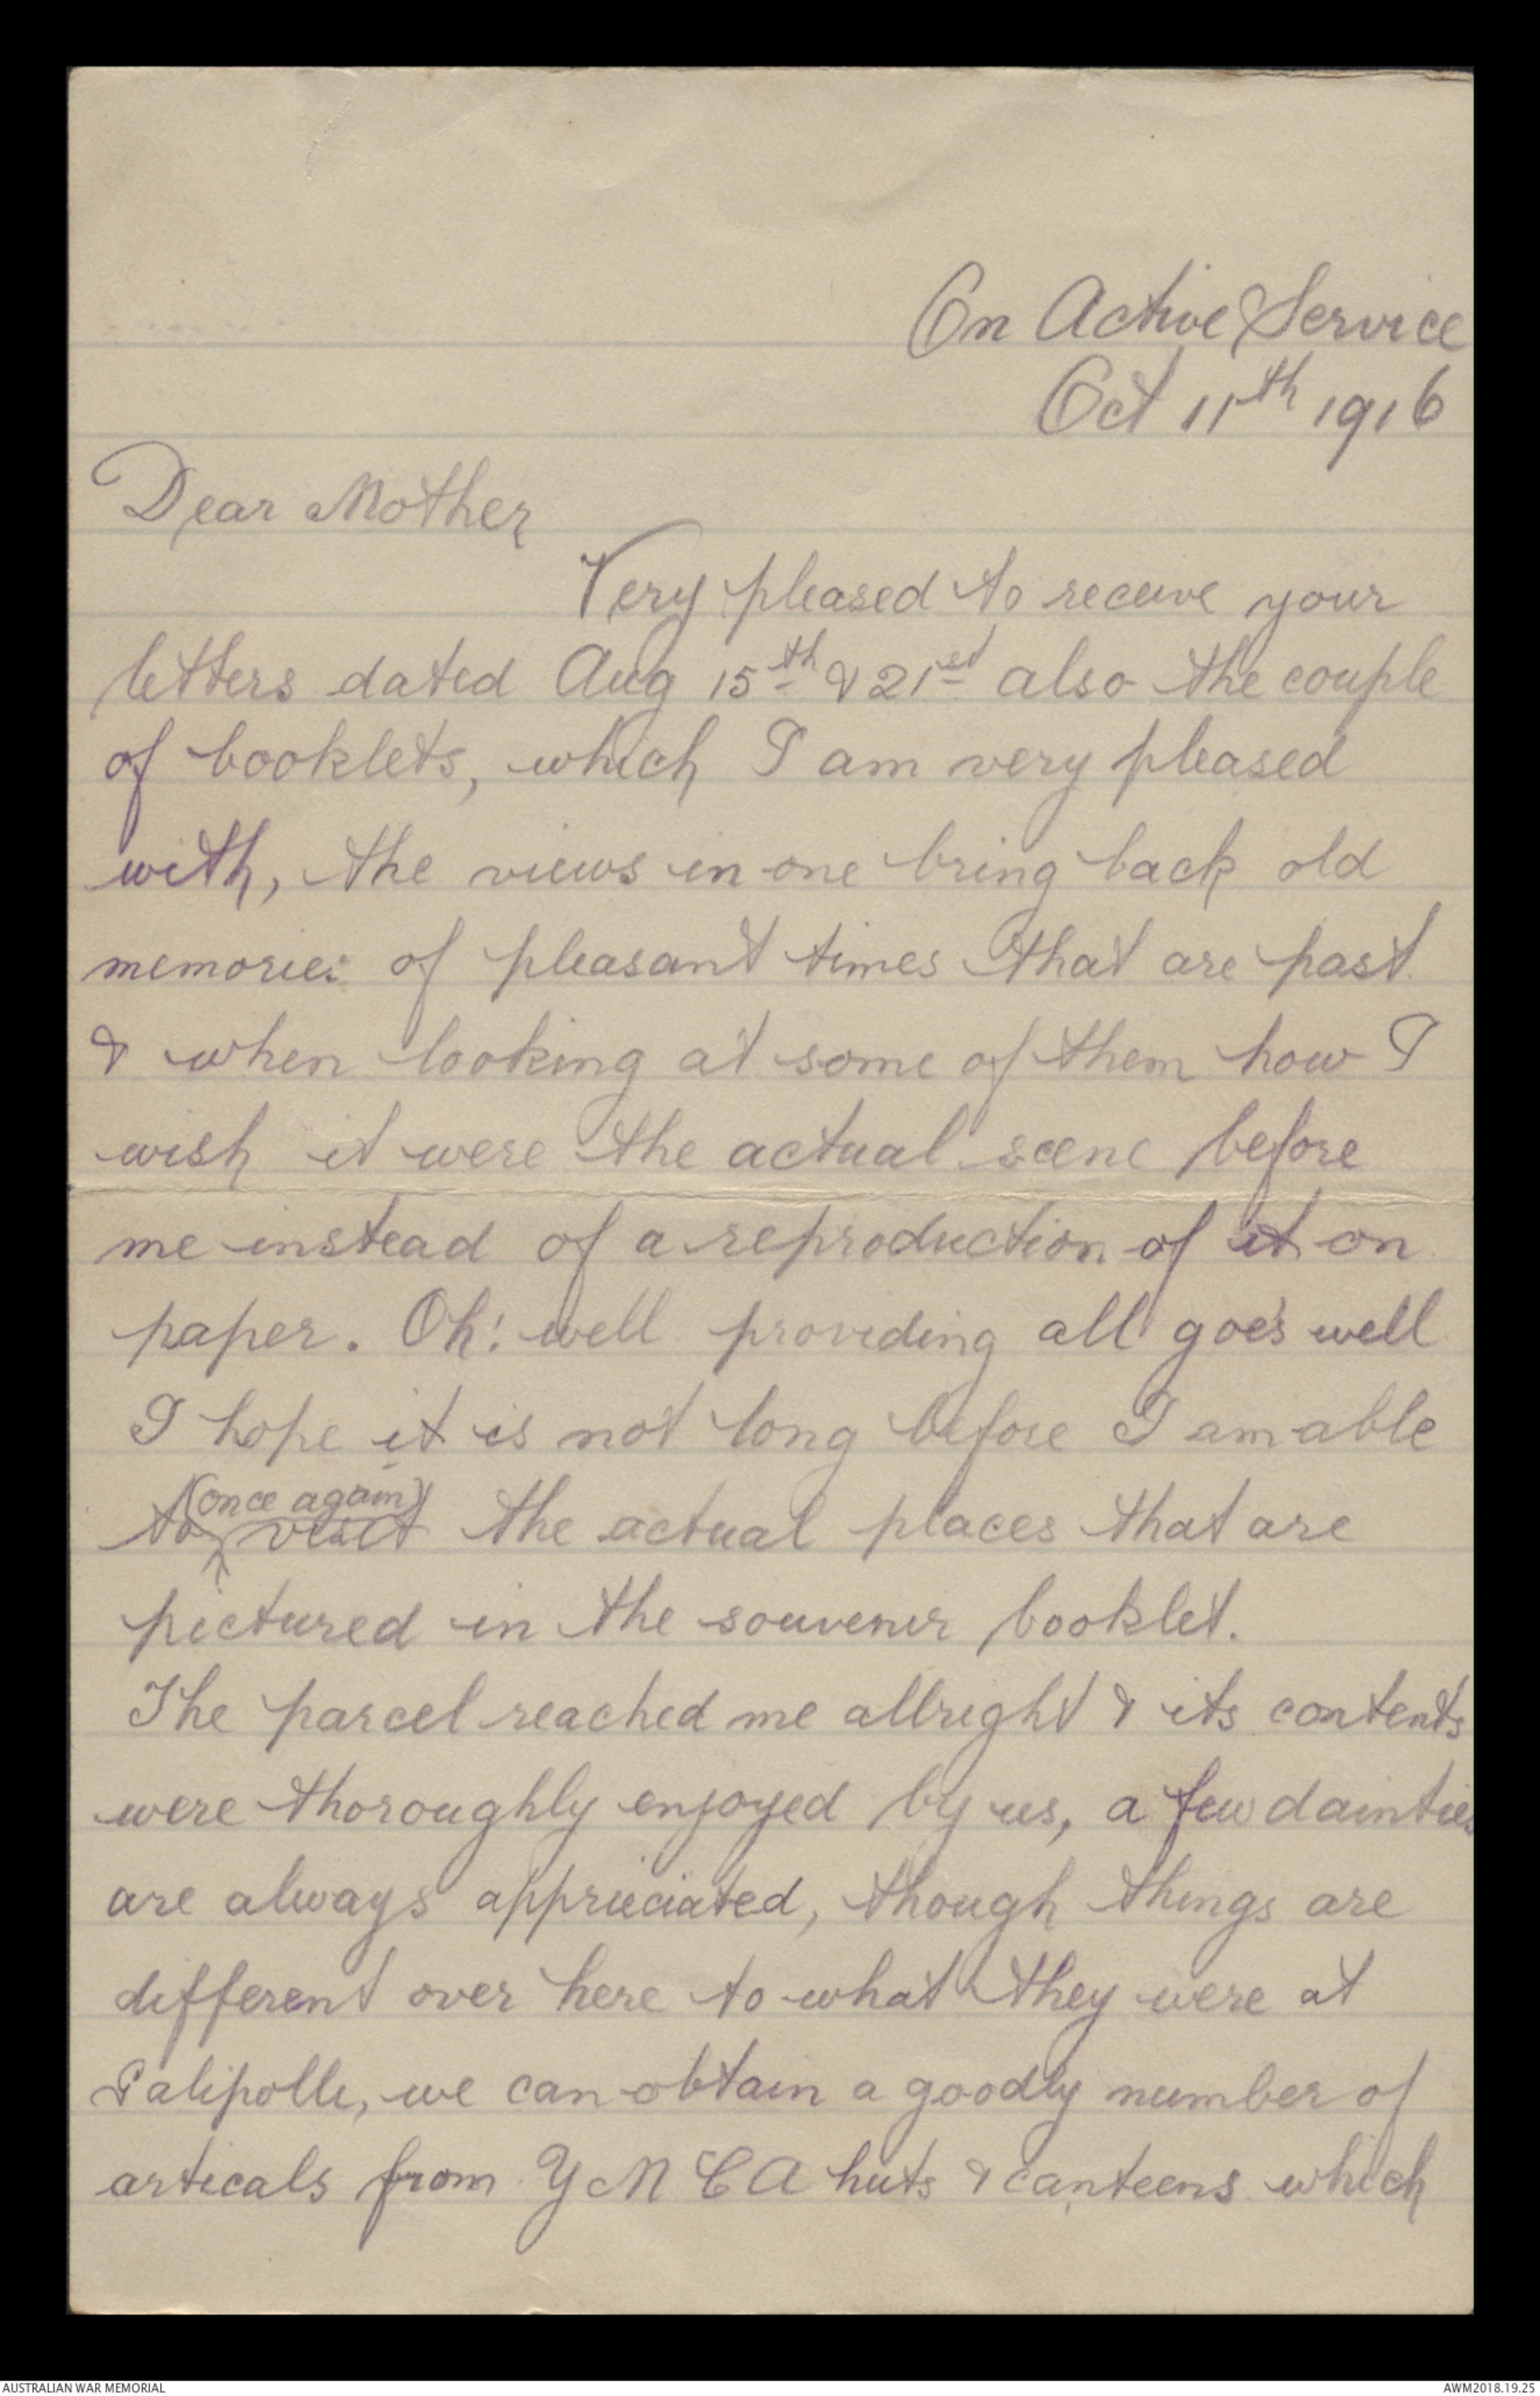 On Active Service
Oct 11th 1916
Dear Mother
Very pleased to receive your
letters dated Aug 15th & 21st also the couple
of booklets, which I am very pleased
with, the views in one bring back old
memories of pleasant times that are past
& when looking at some of them how I
wish it were the actual scene before
me instead of a reproduction of it on
paper. Oh! well providing all goes well
I hope it is not long before I am able
(once again)
to visit the actual places that are
pictured in the souvenir booklet.
The parcel reached me allright & its contents
were thoroughly enjoyed by us, a few dainties
are always apprieciated, though things are
different over here to what they were at
Galipolli, we can obtain a goodly number of
articals from Y M C A huts & canteens which
AUSTRALIAN WAR MEMORIAL
AWM2018.19.25